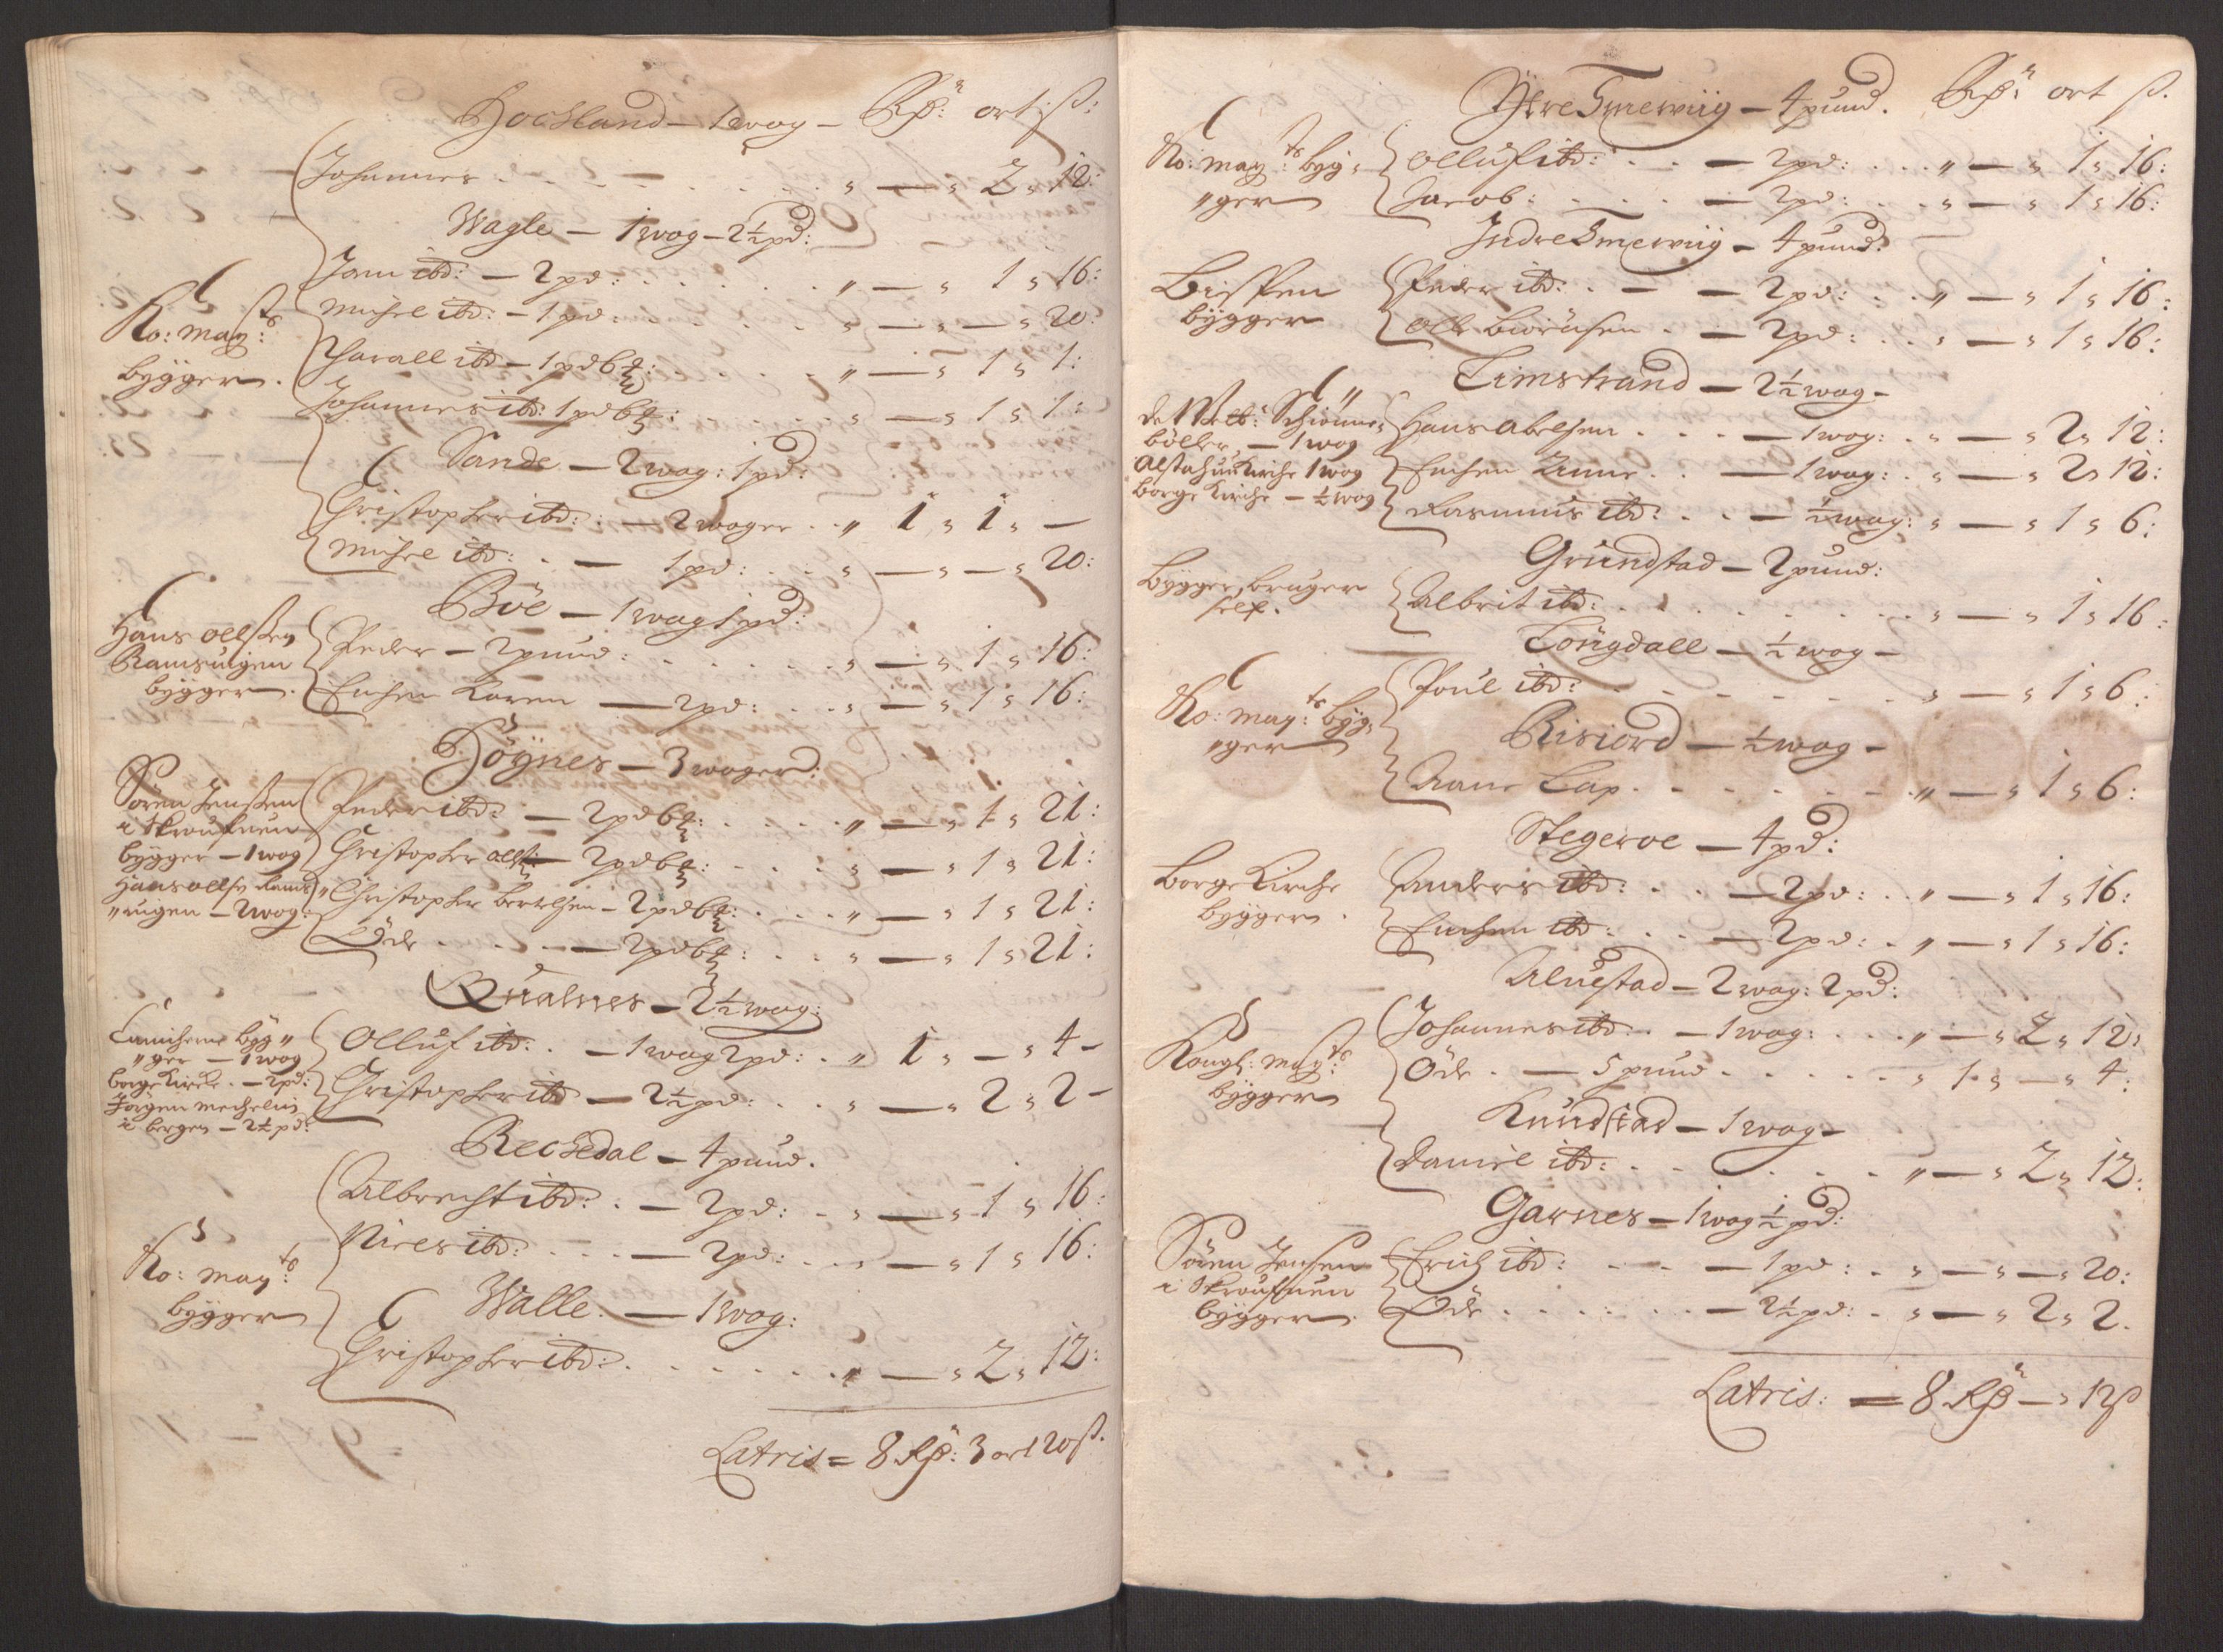 Hochland — 1 wog — Rdr: ort ß:
Johannes . . . " — " 2 " 12:
Wagle — 1 wog — 2½ pd:
Ko: may:ts
bygger.
Jann ibd: — 2 pd: . . . " — " 1 " 16:
Michel ibd: — 1 pd: . . . " — " — " 20:
Harall ibd — 1 pd 6 . . . " — " 1 " 1:
Johannes ibd: 1 pd 6 : . . . " — " 1 " 1:
Sande — 2 wog: 1 pd:
Christopher ibd: — 2 woger . . " 1 " 1 " —
Michel ibd: . — 1 pd: . . " — " — " 20:
Böe — 1 wog 1 pd:
Hans Ollßen
Ramsuigen
bygger.
Peder — 2 pund: . . . " — " 1 " 16:
Enchen Karen — 2 pd: . . " — " 1 " 16:
Höynes — 3 woger:
Sören Jenßen
i Skroufuen
bygger — 1 wog
Hans Ollß Rams
"uigen — 2 wog:
Peder ibd: — 2 pd 6 : . . . " — " 1 " 21:
Christopher Ollß: — 2 pd 6 : . . " — " 1 " 21:
Christopher Bertelsen — 2 pd 6 : . . " — " 1 " 21:
Öde . . . — 2 pd 6 : . . " — " 1 " 21:
Qualnes — 2½ wog:
byg"
"ger — 1 wog
Borge Kirche . — 2 pd:
Jörgen Mechelin
i bergen — 2½ pd:
Olluf ibd: . — 1 wog 2 pd: . " 1 " — " 4 —
Christopher ibd — 2½ pd: . . " — " 2 " 2 —
Rechedal — 4 pund.
Ko: may:ts
bygger
Albrecht ibd: . — 2 pd: . " — " 1 " 16:
Niels ibd: . . . — 2 pd: . . " — " 1 " 16:
Walle. — 1 wog:
Christopher ibd: . . . " — " 2 " 12:
Latris = 8 Rdr: 3 ort 20 ß.
Ytre Smewiig — 4 pund. Rdr: ort ß.
Ko: may:ts byg"
"ger
Olluf ibd: . . — 2 pd: . . . " — " 1 " 16:
Jacob: . . . — 2 pd: . . " — " 1 " 16:
Indre Smewiig — 4 pund:
Bispen
bygger
Peder ibd: . — — 2 pd: . . " — " 1 " 16:
Olle Biörnsen . — 2 pd: . . " — " 1 " 16:
Limstrand — 2½ wog —
böller, — 1 wog
Alstahug Kirche 1 wog
Borge Kirche — ½ wog
Hans Abelsen . . . — 1 wog: . " — " 2 " 12:
Enchen Anne . . — 1 wog: . " — " 2 " 12:
Rasmus ibd: . . — ½ wog: " — " 1 " 6:
Grundstad — 2 pund:
Bygger, bruger
self.
Albrit ibd: . . . " — " 1 " 16:
Longdall — ½ wog —
Ko: may:ts byg"
"ger
Poul ibd: . . . " — " 1 " 6:
Risiord — ½ wog —
Rane Lap . . . " — " 1 " 6:
Stegeroe — 4 pd:
Borge Kirche
bygger.
Anders ibd: . . — 2 pd: . . " — " 1 " 16:
Enchen ibd: . . — 2 pd: . " — " 1 " 16:
Aluestad — 2 wog: 2 pd:
Kongl: may:ts
bygger
Johannes ibd: . — 1 wog: . . . " — " 2 " 12:
Öde . — 5 pund . . . " 1 " — " 4:
Knudstad — 1 wog —
Daniel ibd: . . . " — " 2 " 12:
Garnes — 1 wog ½ pd:
Sören Jensen
i Skroufuen
bygger.
Erich ibd: . . — 1 pd: . " — " — " 20:
Öde . . . — 2½ pd: . " — " 2 " 2.
Latris: = 8 Rdr — " 12 ß